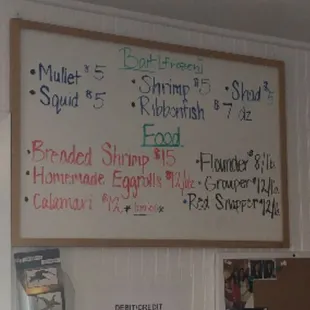 Bait (frozen)
• Mullet $5
• Shrimp $5
• Shad $5
• Squid $5
• Ribbonfish $7 dz
Food
• Breaded Shrimp $15
• Flounder $8/lb
• Homemade Eggrolls $12/dz
• Grouper $12/lb
• Calamari $12
• Red Snapper $12/lb
DEBIT/CREDIT